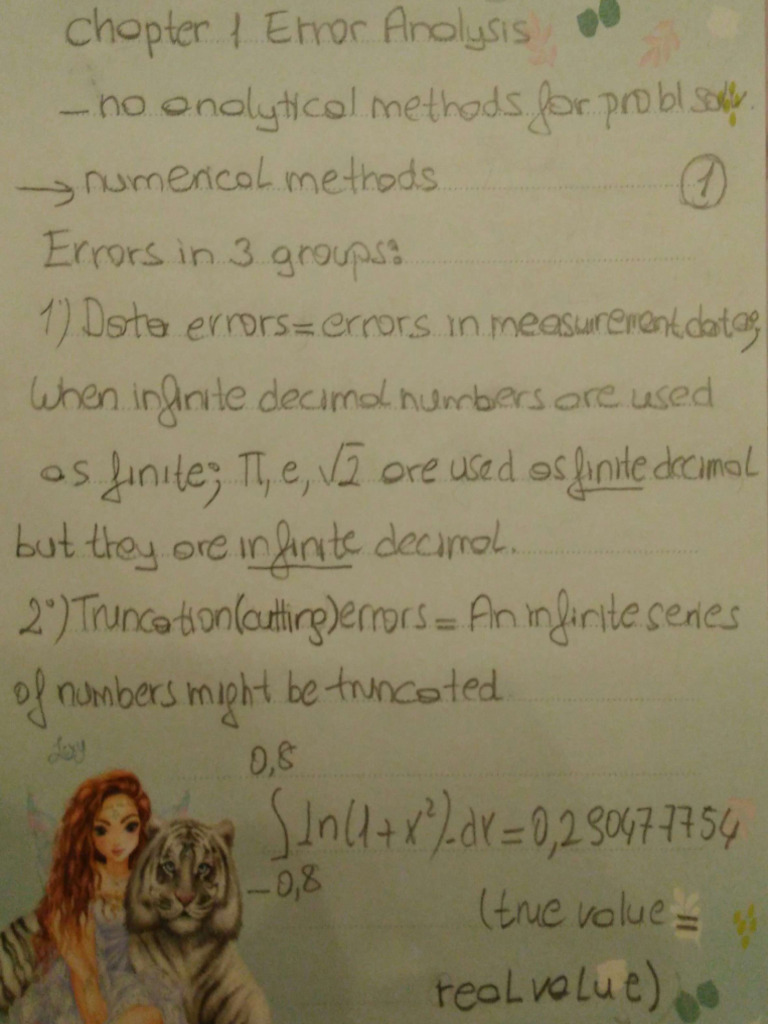 Chapter 1 Error Analysis
– no analytical methods for probl solv.
→ numerical methods
①
Errors in 3 groups:
1°) Data errors = errors in measurement data;
when infinite decimal numbers are used
as finite; π, e, √2 are used as finite decimal
but they are infinite decimal.
2°) Truncation (cutting) errors = An infinite series
of numbers might be truncated
0,8
∫ln(1+x²).dx = 0,290477754
–0,8
(true value =
real value)